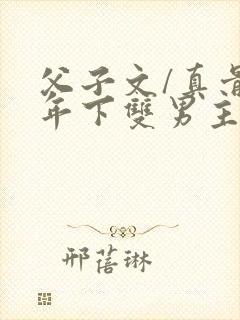 父子文/真骨
年下雙男主
邢蓓琳